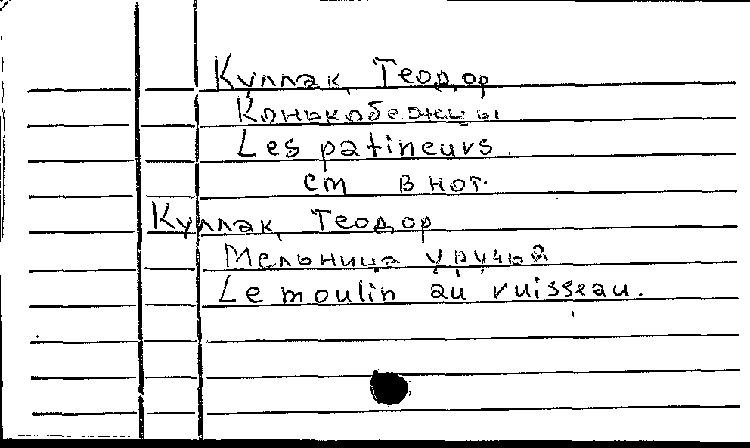 Куллак, Теодор
Конькобежцы
Les patineurs.
см в нот.
Куллак, Теодор
Мельница у ручья
Le moulin au ruisseau.